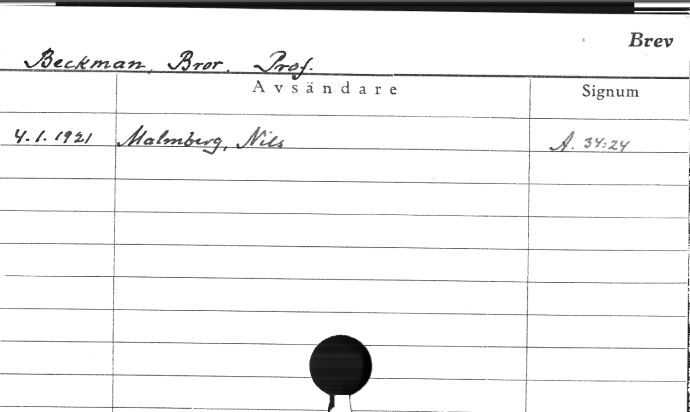 Brev
Beckman, Bror. Prof.
Avsändare Signum
4.1.1921 Malmberg, Nils A. 34:24